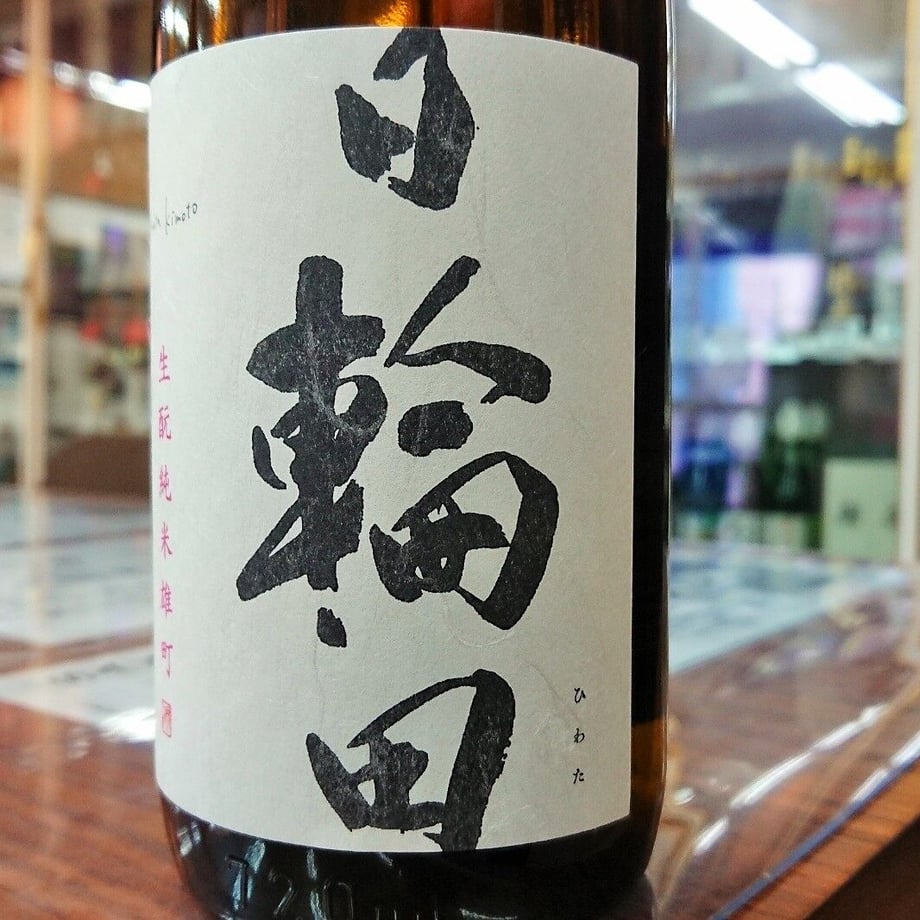 日輪田
ひわた
kimoto
生酛純米雄町
720